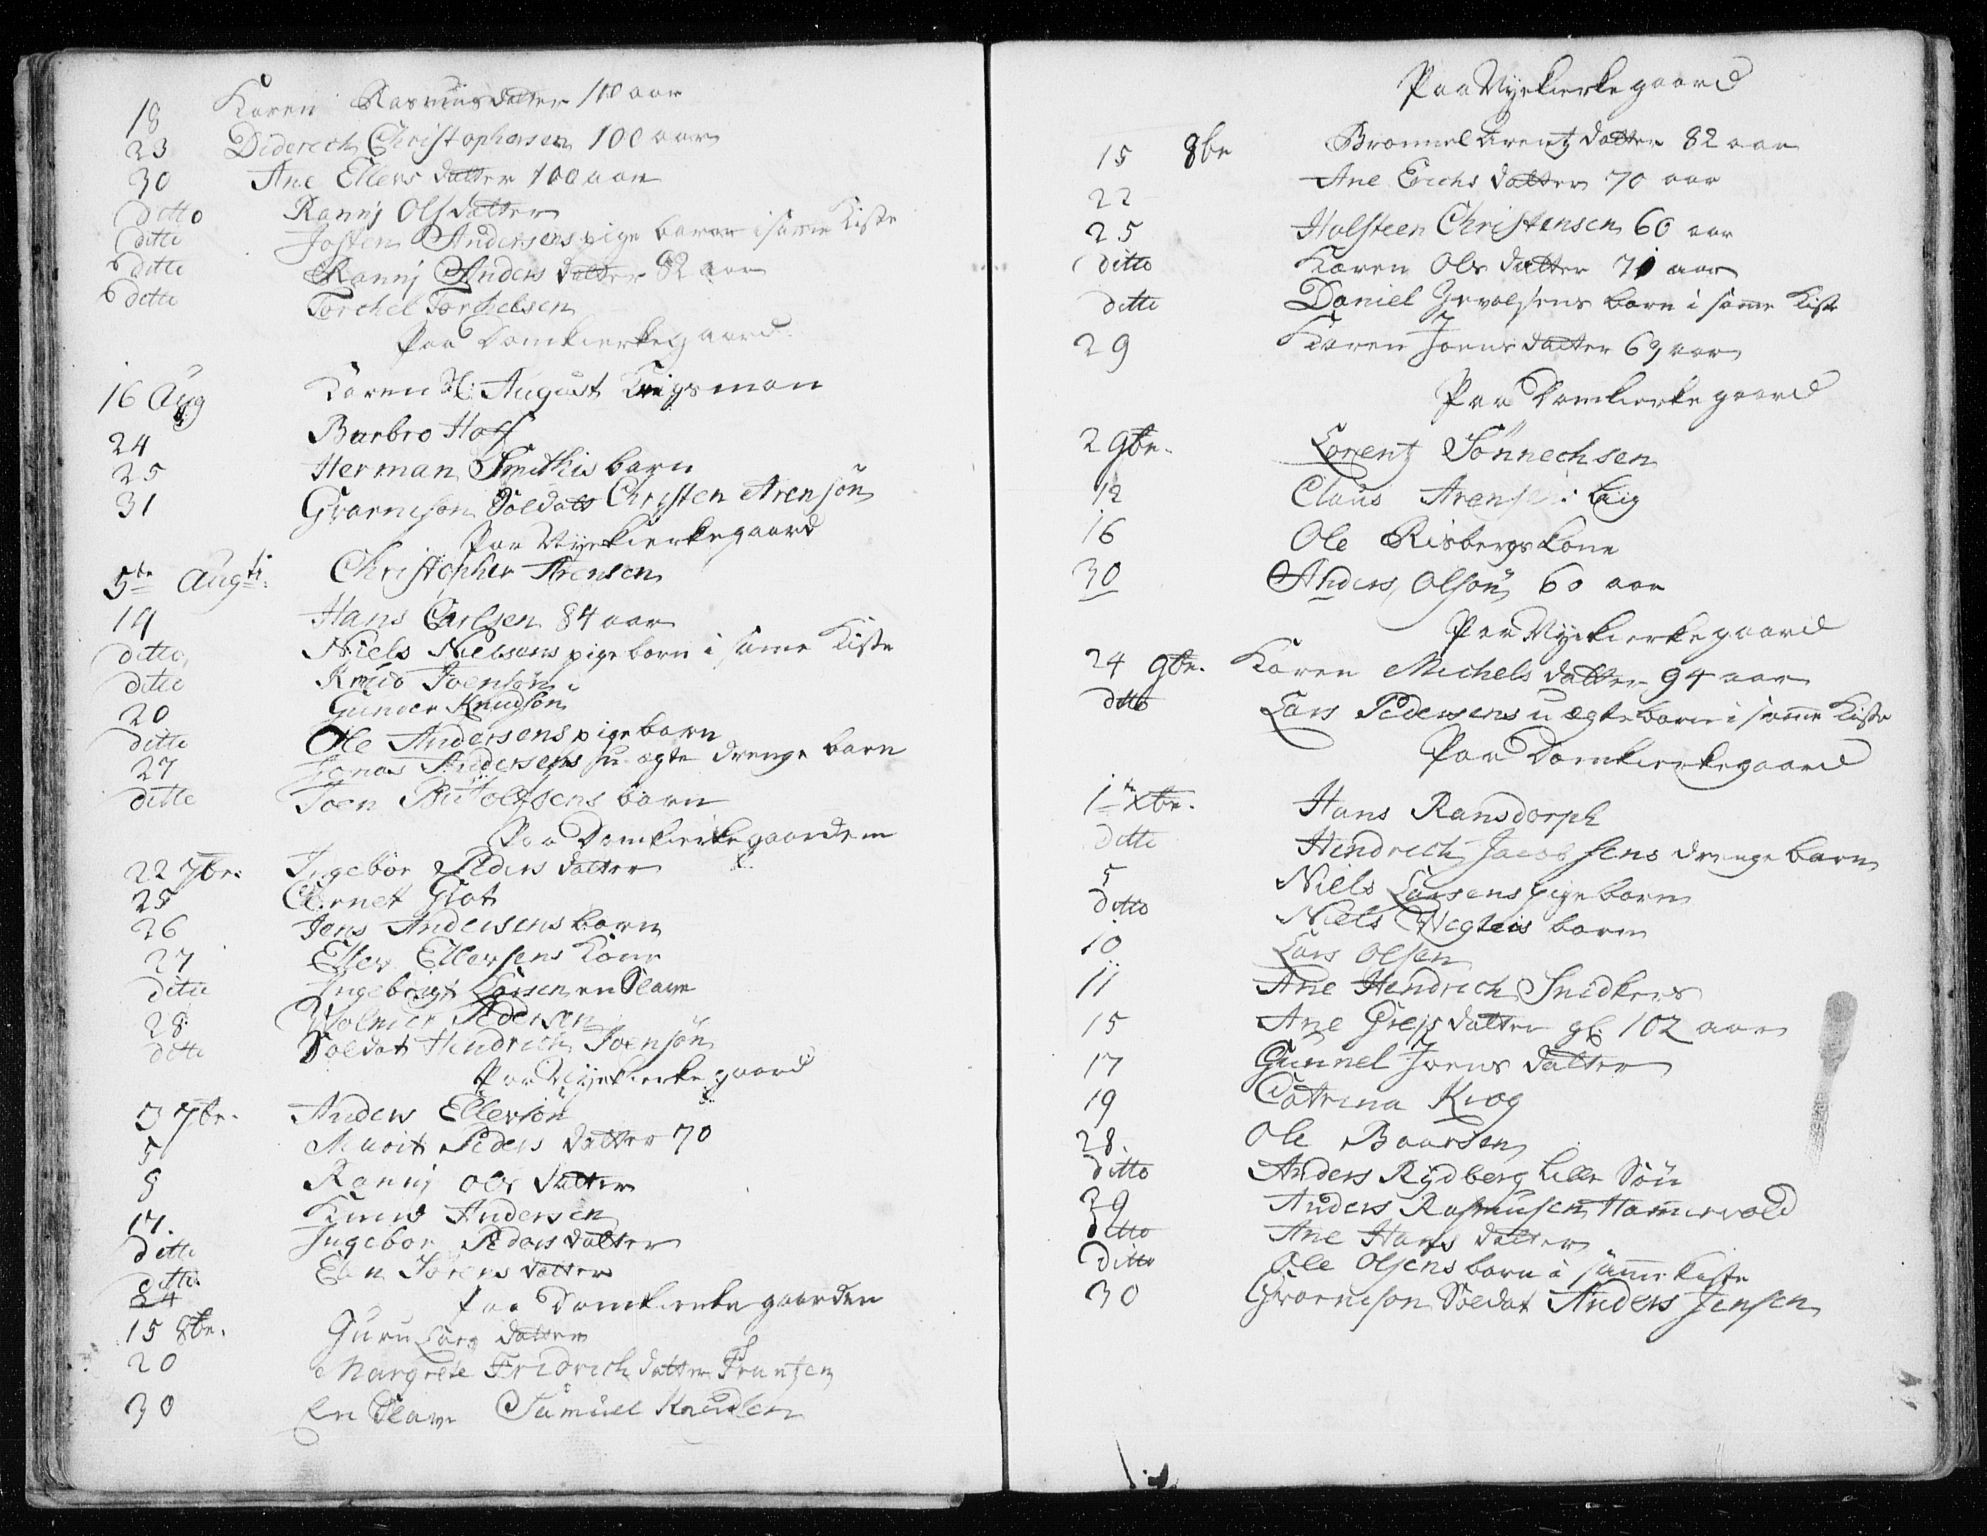 18 Karen Rasmusdatter 100 aar
23 Diderich Christophersen 100 aar
30 Ane Ellers datter 100 aar
ditto Ranni Olsdatter
ditto Josten Andersens pige barn i same Kiste
ditto Ranni Anders datter 82 aar
ditto Torchel Torchelsen
Paa Domkierkegaard
16 Aug Karen H: August Krigsman
24 Barbro Hoff
25 Herman Smithis barn
31 Guarnison Soldatt Christen Arensøn
Paa Nyekierkegaard
5te Augti: Christopher Arensen
14 Hans Carlsen 84 aar
ditto Niels Nielsens pige barn i same Kiste
ditto Knud Joensøn
20 Gunder Knudsøn
ditto Ole Andersens pige barn
27 Jonas Andersens u-ægte drenge barn
ditto Joen Botolfsens barn
Paa Domkierkegaarden
22 7br. Ingebor Peders datter
25 Ernet Grot
26 Jens Andersens barn
27 Eller Ellersens Kone
ditto Ingebrigt Larsen en Slave
28 Wolmer Pedersen
ditto Soldat Hendrich Joensøn
Paa Nyekierkegaard
3 7br. Anders Ellersøn
5 Marit Peders datter 70
8 Ranni Ols datter
17. Knud Andersen
ditto Ingebor Peders datter
ditto
24 Eln Sørens datter
Paa Domkierke gaarden
15 8br. Guru Lars datter
20 Margrete Fridrich datter Frantzen
30 En Slave Samuel Knudsen
Paa Nyekierke gaard
15 8br Bronnel Arentz datter 82 aar
22 Ane Erichs datter 70 aar
25 Holsteen Christensen 60 aar
ditto Karen Ols datter 70 aar
ditto Daniel barn i same Kiste
29 Karen Joens datter 63 aar
Paa Domkierke gaard
2 9br. Lorentz Sønnechsen
12 Claus Arensen
16 Ole Risbergs Kone
30 Anders Olsøn 60 aar
Paa Nyekierkegaard
24 9br. Karen Michels datter 94 aar
ditto Lars Pedersens u ægte barn i same Kiste
Paa Domkierkegaard
1 Xbr. Hans Ransdorph
ditto Hendrich Jacobsens drenge barn
5 Niels Larsens pige barn
ditto Niels Wegleis barn
10 Lars Olsen
11 Ane Hendrich Snidkers
15 Ane Greis datter gl. 102 aar
17 Gunnel Joens datter
19 Catrina Krog
28. Ole Baarsen
ditto Anders Rydberg lille Søn
29 Anders Rasmusen Hammervold
ditto Ane Hans datter
ditto Ole Olsens barn i samme Kiste
30 Guarnison Soldat Anders Jensen